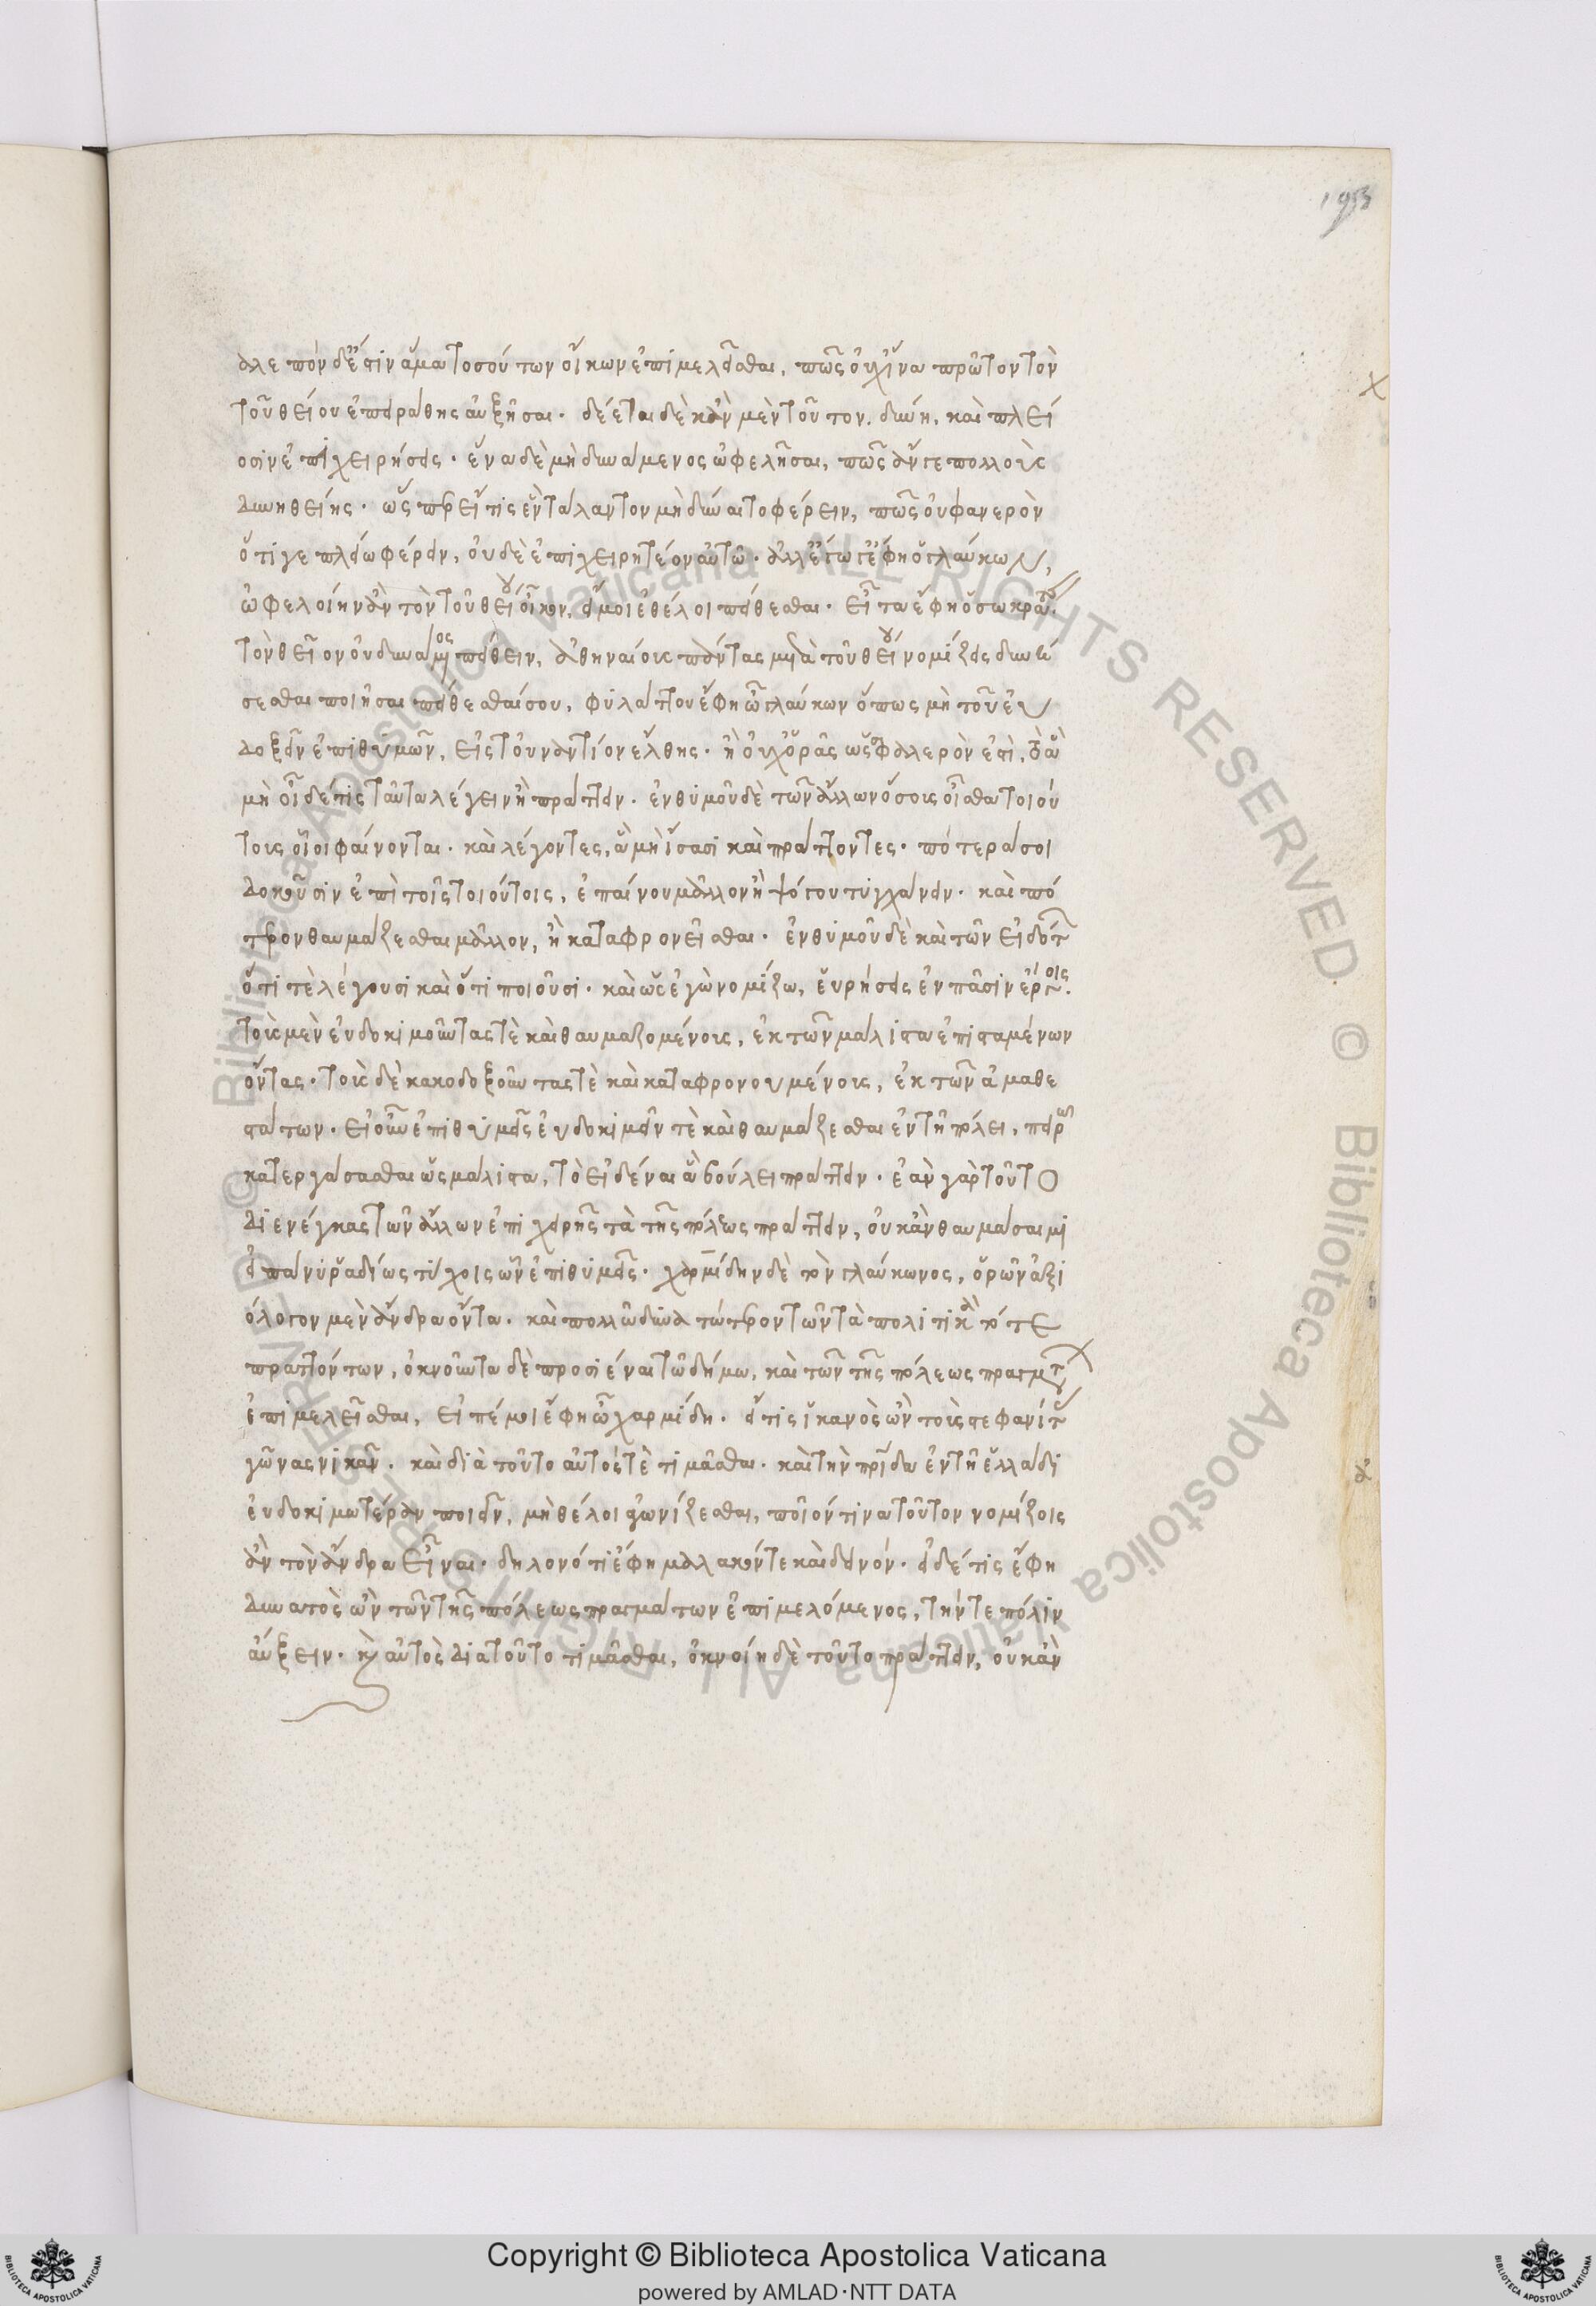 193
αλεπόν δέ ἐστιν ἅμα τοσούτων οἴκων ἐπιμελεῖσθαι, πῶς οὐχ ἵνα πρῶτον τὸν
τοῦ θείου ἐπειράθης αὐξῆσαι. δέεται δὲ κἂν μὲν τοῦτον δύνῃ, καὶ πλεί
οσιν ἐπιχειρήσεις. ἕνα δὲ μὴ δυνάμενος ὠφελῆσαι, πῶς ἄν γε πολλοὺς
δυνηθείης. ὥσπερ εἴ τις ἓν τάλαντον μὴ δύναιτο φέρειν, πῶς οὐ φανερὸν
ὅτι γε πλείω φέρειν, οὐδὲ ἐπιχειρητέον αὐτῷ. ἀλλ' ἔγωγ' ἔφη ὁ γλαύκων,
ὠφελοίην ἂν τὸν τοῦ θείου οἶκον, εἴ μοι ἐθέλοι πείθεσθαι. εἶτα ἔφη ὁ σωκράτης
τὸν θεῖον οὐ δυνάμενος πείθειν, ἀθηναίους πάντας μετὰ τοῦ θείου νομίζεις δυνή
σεσθαι ποιῆσαι πείθεσθαί σου, φυλάττου ἔφη ὦ γλαύκων ὅπως μὴ τοῦ εὐ
δοξεῖν ἐπιθυμῶν, εἰς τοὐναντίον ἔλθης. ἢ οὐχ ὁρᾷς ὡς σφαλερὸν ἐστὶ, τὸ ἃ
μὴ οἶδέ τις ταῦτα λέγειν ἢ πράττειν. ἐνθυμοῦ δὲ τῶν ἄλλων ὅσους οἶσθα τοιού
τους οἷοι φαίνονται. καὶ λέγοντες, ἃ μὴ ἴσασι καὶ πράττοντες. πότερά σοι
δοκοῦσιν ἐπὶ τοῖς τοιούτοις, ἐπαίνου μᾶλλον ἢ ψόγου τυγχάνειν. καὶ πό
τερον θαυμάζεσθαι μᾶλλον, ἢ καταφρονεῖσθαι. ἐνθυμοῦ δὲ καὶ τῶν εἰδότων
ὅτι τὲ λέγουσι καὶ ὅτι ποιοῦσι. καὶ ὡς ἐγὼ νομίζω, εὑρήσεις ἐν πᾶσιν ἔργοις
τοὺς μὲν εὐδοκιμοῦντας τὲ καὶ θαυμαζομένους, ἐκ τῶν μάλιστα ἐπισταμένων
ὄντας. τοὺς δὲ κακοδοξοῦντας τὲ καὶ καταφρονουμένους, ἐκ τῶν ἀμαθε
στάτων. εἰ οὖν ἐπιθυμεῖς εὐδοκιμεῖν τὲ καὶ θαυμάζεσθαι ἐν τῇ πόλει, πειρῶ
κατεργάσασθαι ὡς μάλιστα, τὸ εἰδέναι ἃ βούλει πράττειν. ἐὰν γὰρ τοῦτο
διενέγκας τῶν ἄλλων ἐπιχειρῇς τὰ τῆς πόλεως πράττειν, οὐκ ἂν θαυμάσαιμι
εἰ πάνυ ῥαδίως τύχοις ὧν ἐπιθυμεῖς. χαρμίδην δὲ τὸν γλαύκωνος, ὁρῶν ἀξι
όλογον μὲν ἄνδρα ὄντα. καὶ πολλῷ δυνατώτερον τῶν τὰ πολιτικὰ τότε
πραττόντων, ὀκνοῦντα δὲ προσιέναι τῷ δήμῳ, καὶ τῶν τῆς πόλεως πραγμάτων
ἐπιμελεῖσθαι, εἰπέ μοι ἔφη ὦ χαρμίδη. εἴ τις ἱκανὸς ὢν τοὺς στεφανίτας
γῶνας νικᾶν. καὶ διὰ τοῦτο αὐτός τὲ τιμᾶσθαι. καὶ τὴν πατρίδα ἐν τῇ ἑλλάδι
εὐδοκιμωτέραν ποιεῖν, μὴ θέλοι ἀγωνίζεσθαι, ποῖόν τινα τοῦτον νομίζοις
ἂν τὸν ἄνδρα εἶναι. δηλονότι ἔφη μαλακόν τε καὶ δεινόν. εἰ δέ τις ἔφη
δυνατὸς ὢν τῶν τῆς πόλεως πραγμάτων ἐπιμελόμενος, τήν τε πόλιν
αὔξειν. καὶ αὐτὸς διὰ τοῦτο τιμᾶσθαι, ὀκνοίη δὲ τοῦτο πράττειν, οὐκ ἂν
Copyright © Biblioteca Apostolica Vaticana
powered by AMLAD·NTT DATA